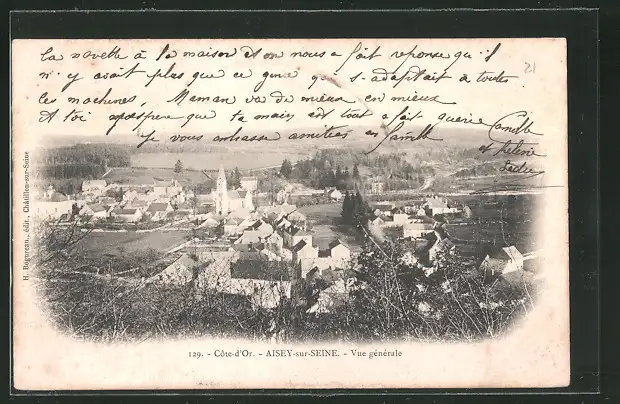 la navette à la maison et on nous a fait reponse qu'il
n'y avait plus que ce genre qui s'adaptait à toutes
les machines. Maman va de mieux en mieux
et toi j'espere que ta main est tout a fait guerie Camille
je vous embrasse amitiés en famille et Helene
21
H. Bogureau, édit., Châtillon-sur-Seine
129. - Côte-d'Or. - AISEY-sur-SEINE. - Vue générale